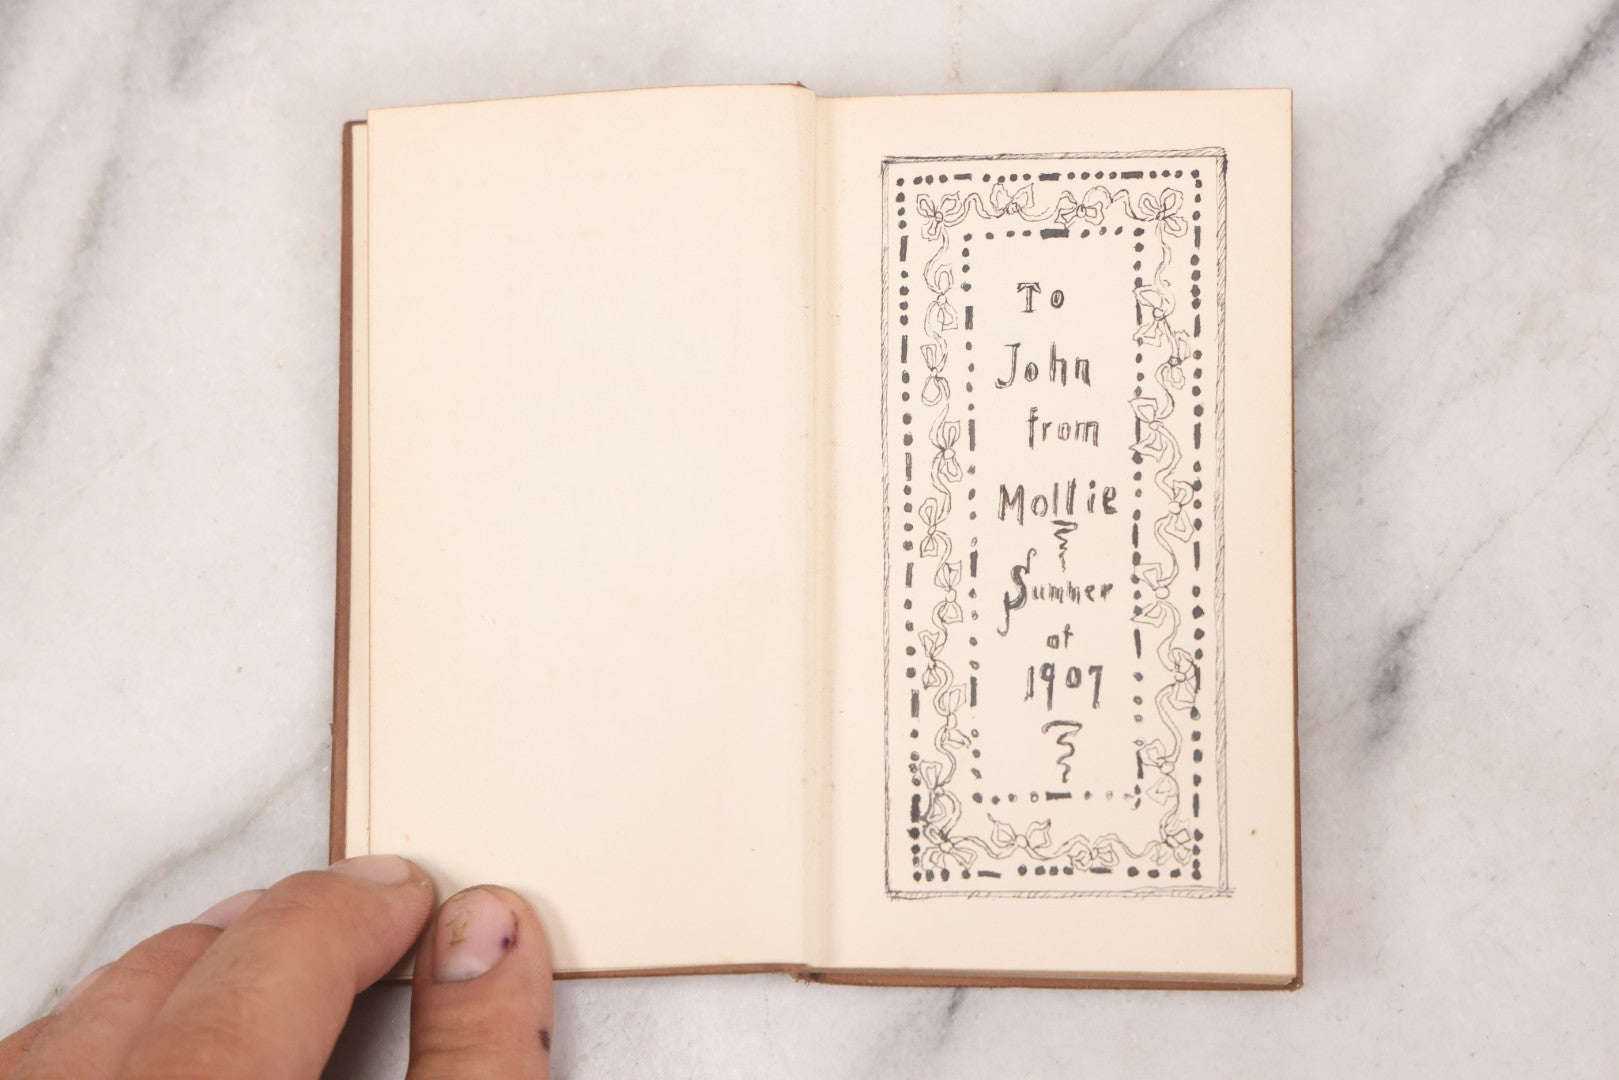 To
John
from
Mollie
Summer
of
1907